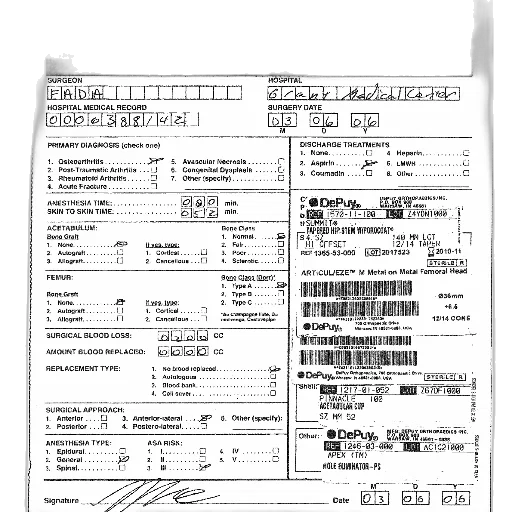 SURGEON
FADA
HOSPITAL
Grant Medical Center
HOSPITAL MEDICAL RECORD
SURGERY DATE
03 06 06
M D Y
PRIMARY DIAGNOSIS (check one)
1. Osteoarthritis
2. Post-Traumatic Arthritis
3. Rheumatoid Arthritis
4. Acute Fracture
5. Avascular Necrosis
6. Congenital Dysplasia
7. Other (specify):
DISCHARGE TREATMENTS
1. None
2. Aspirin
3. Coumadin
4. Heparin
5. LMWH
6. Other
ANESTHESIA TIME: min.
SKIN TO SKIN TIME: min.
ACETABULUM:
Bone Graft
1. None
2. Autograft
3. Allograft
If yes, type:
1. Cortical
2. Cancellous
Bone Class
1. Normal
2. Fair
3. Poor
4. Sclerotic
FEMUR:
Bone Graft
1. None
2. Autograft
3. Allograft
If yes, type:
1. Cortical
2. Cancellous
Bone Class (Dorr)
1. Type A
2. Type B
3. Type C
SURGICAL BLOOD LOSS: CC
AMOUNT BLOOD REPLACED: 0000 CC
REPLACEMENT TYPE:
1. No blood replaced
2. Autologous
3. Blood bank
4. Cell saver
SURGICAL APPROACH:
1. Anterior
2. Posterior
3. Antero-lateral
4. Postero-lateral
5. Other (specify):
ANESTHESIA TYPE:
1. Epidural
2. General
3. Spinal
ASA RISK:
1. I
2. II
3. III
4. IV
5. V
DePuy
REF 1570-11-100 LOT Z4YDN1000
SUMMIT
TAPERED HIP STEM W/POROCOAT
HI OFFSET 12/14 TAPER
LOT 2017523 2010-11
STERILE R
ARTICUL/EZE M Metal on Metal Femoral Head
Ø36mm
12/14 CONE
DePuy
DePuy
STERILE R
Shell:
REF 1217-01-052 LOT
PINNACLE 100
ACETABULAR CUP
SZ MM 52
Other:
DePuy
REF 1246-03-000 LOT
APEX (TM)
HOLE ELIMINATOR-PS
Signature
Date 03 06 06
M D Y